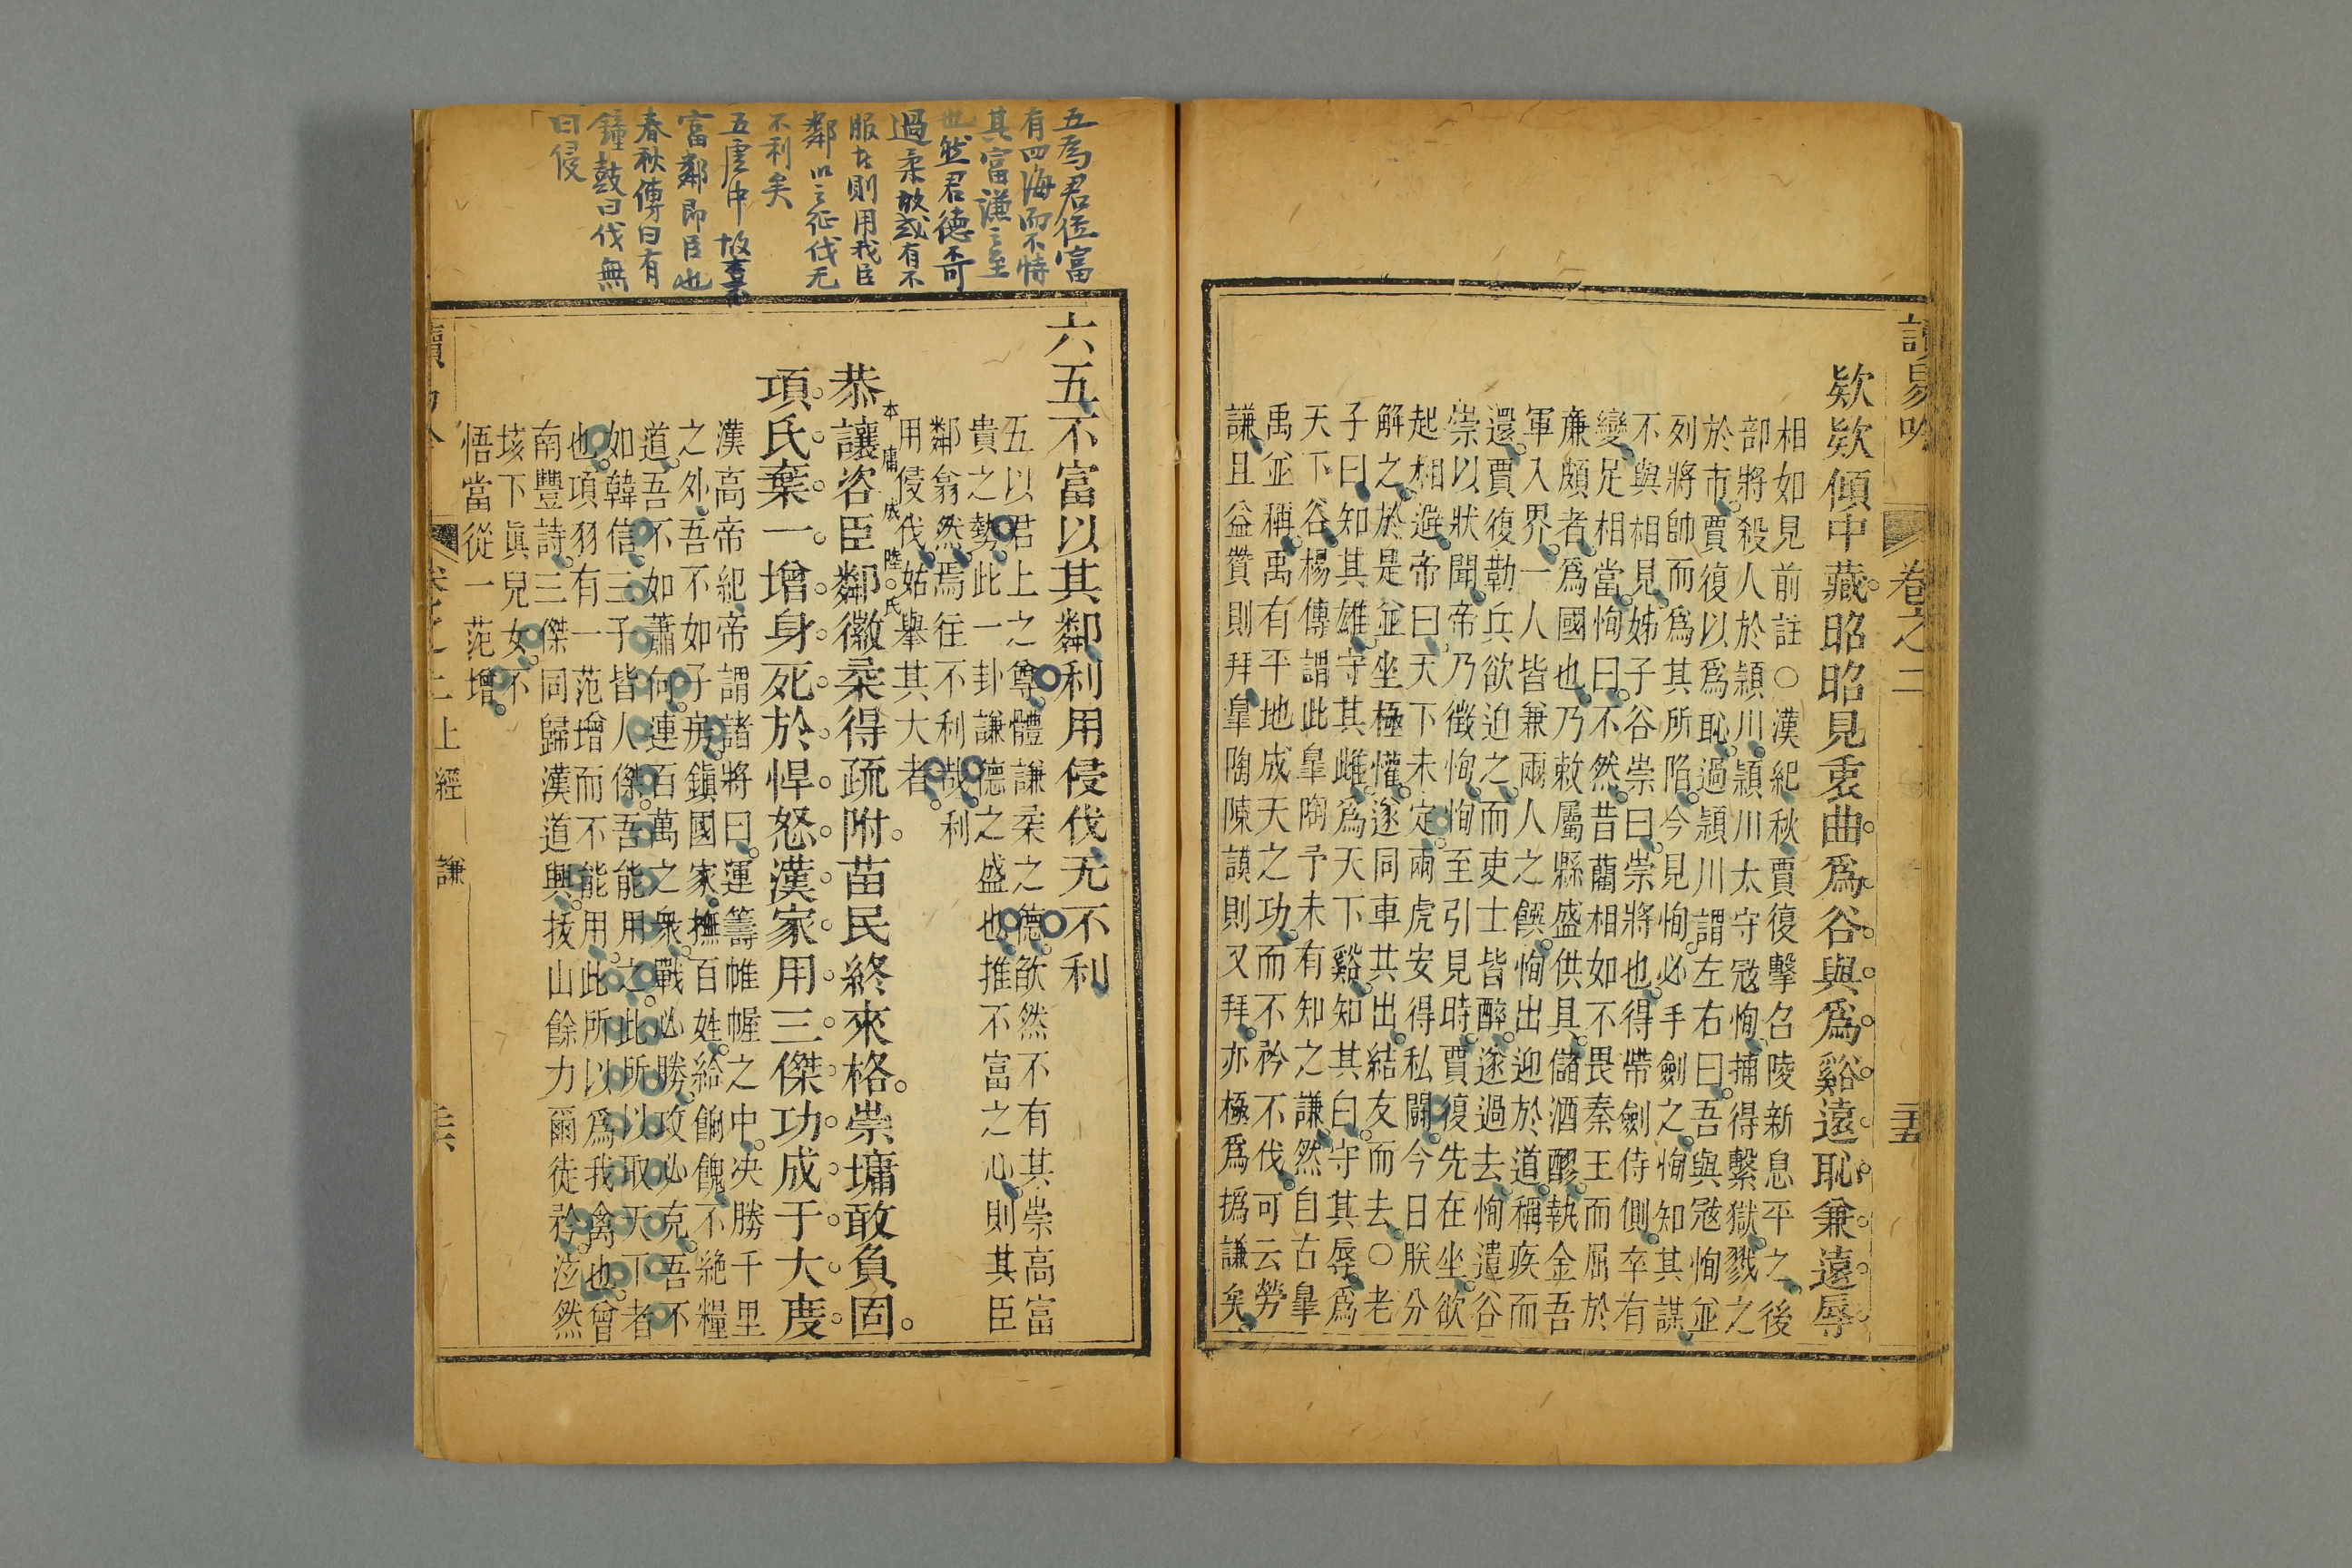 讀易吟
卷之二
二十五
欵欵傾中藏昭昭見衷曲爲谷與爲谿遠恥兼遠辱
相如見前註○漢紀秋賈復擊召陵新息平之後
部將殺人於潁川潁川太守寇恂捕得繫獄戮之
於市賈復以爲恥過潁川謂左右曰吾與寇恂並
列將帥而爲其所陷今見恂必手劍之恂知其謀
不與相見姊子谷崇曰崇將也得帶劍侍側卒有
變足相當恂曰不然昔藺相如不畏秦王而屈於
廉頗者爲國也乃敕屬縣盛供具儲酒醪執金吾
軍入界一人皆兼兩人之饌恂出迎於道稱疾而
還賈復勒兵欲迫之而吏士皆醉遂過去恂遣谷
崇以狀聞帝乃徵恂恂至引見時賈復先在坐欲
起相避帝曰天下未定兩虎安得私鬭今日朕分
解之於是並坐極懽遂同車共出結友而去○老
子曰知其雄守其雌爲天下谿知其白守其辱爲
天下谷楊傳謂此臯陶予未有知之謙然自古臯
禹並稱禹有平地成天之功而不矜不伐可云勞
謙且益贊則拜臯陶陳謨則又拜亦極爲撝謙矣
五為君位富
有四海而不恃
其富謙之至
也然君德不可
過柔故或有不
服者則用我臣
鄰以之征伐无
不利矣
五虛中故言不
富鄰即臣也
春秋傳曰有
鐘鼓曰伐無
曰侵
六五不富以其鄰利用侵伐无不利
五以君上之尊體謙柔之德欿然不有其崇高富
貴之勢此一卦謙德之盛也推不富之心則其臣
鄰翕然焉往不利哉利
用侵伐姑舉其大者
本庸成陸氏
恭讓咨臣鄰徽柔得疏附苗民終來格崇墉敢負固
項氏棄一增身死於悍怒漢家用三傑功成于大度
漢高帝紀帝謂諸將曰運籌帷幄之中決勝千里
之外吾不如子房鎮國家撫百姓給餉餽不絶糧
道吾不如蕭何連百萬之衆戰必勝攻必克吾不
如韓信三子皆人傑吾能用之此所以取天下者
也項羽有一范增而不能用此所以爲我禽也曾
南豐詩三傑同歸漢道興拔山餘力爾徒矜泫然
垓下眞兒女不
悟當從一范增
卷之二 上經 謙